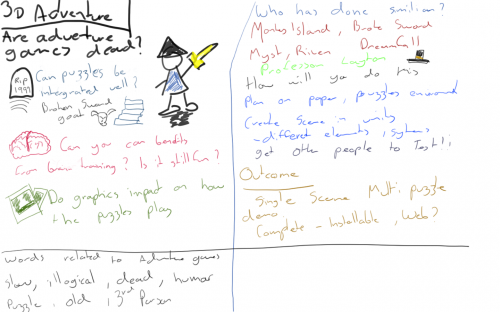 3D Adventure
Are adveture
games dead?
R.I.P
1999
Can puzzles be
intergrated well?
Broken Sword
goat
Can you can benefit
from brain training? Is it still fun?
Do graphics impact on how
the puzzles play
Words related to Adventure games
Slow, illogical, dead, humor
Puzzle, old, 3rd Person
Who has done similar?
Monkey Island, Broke Sword
Myst, Riven DreamFall
Professor Layton
How will you do this
Plan on paper, puzzles enviroment
Create Scene in unity
- different elements, systems
get other people to Test!!
Outcome
Single Scene Multi puzzle
demo
Complete - Installable, Web?